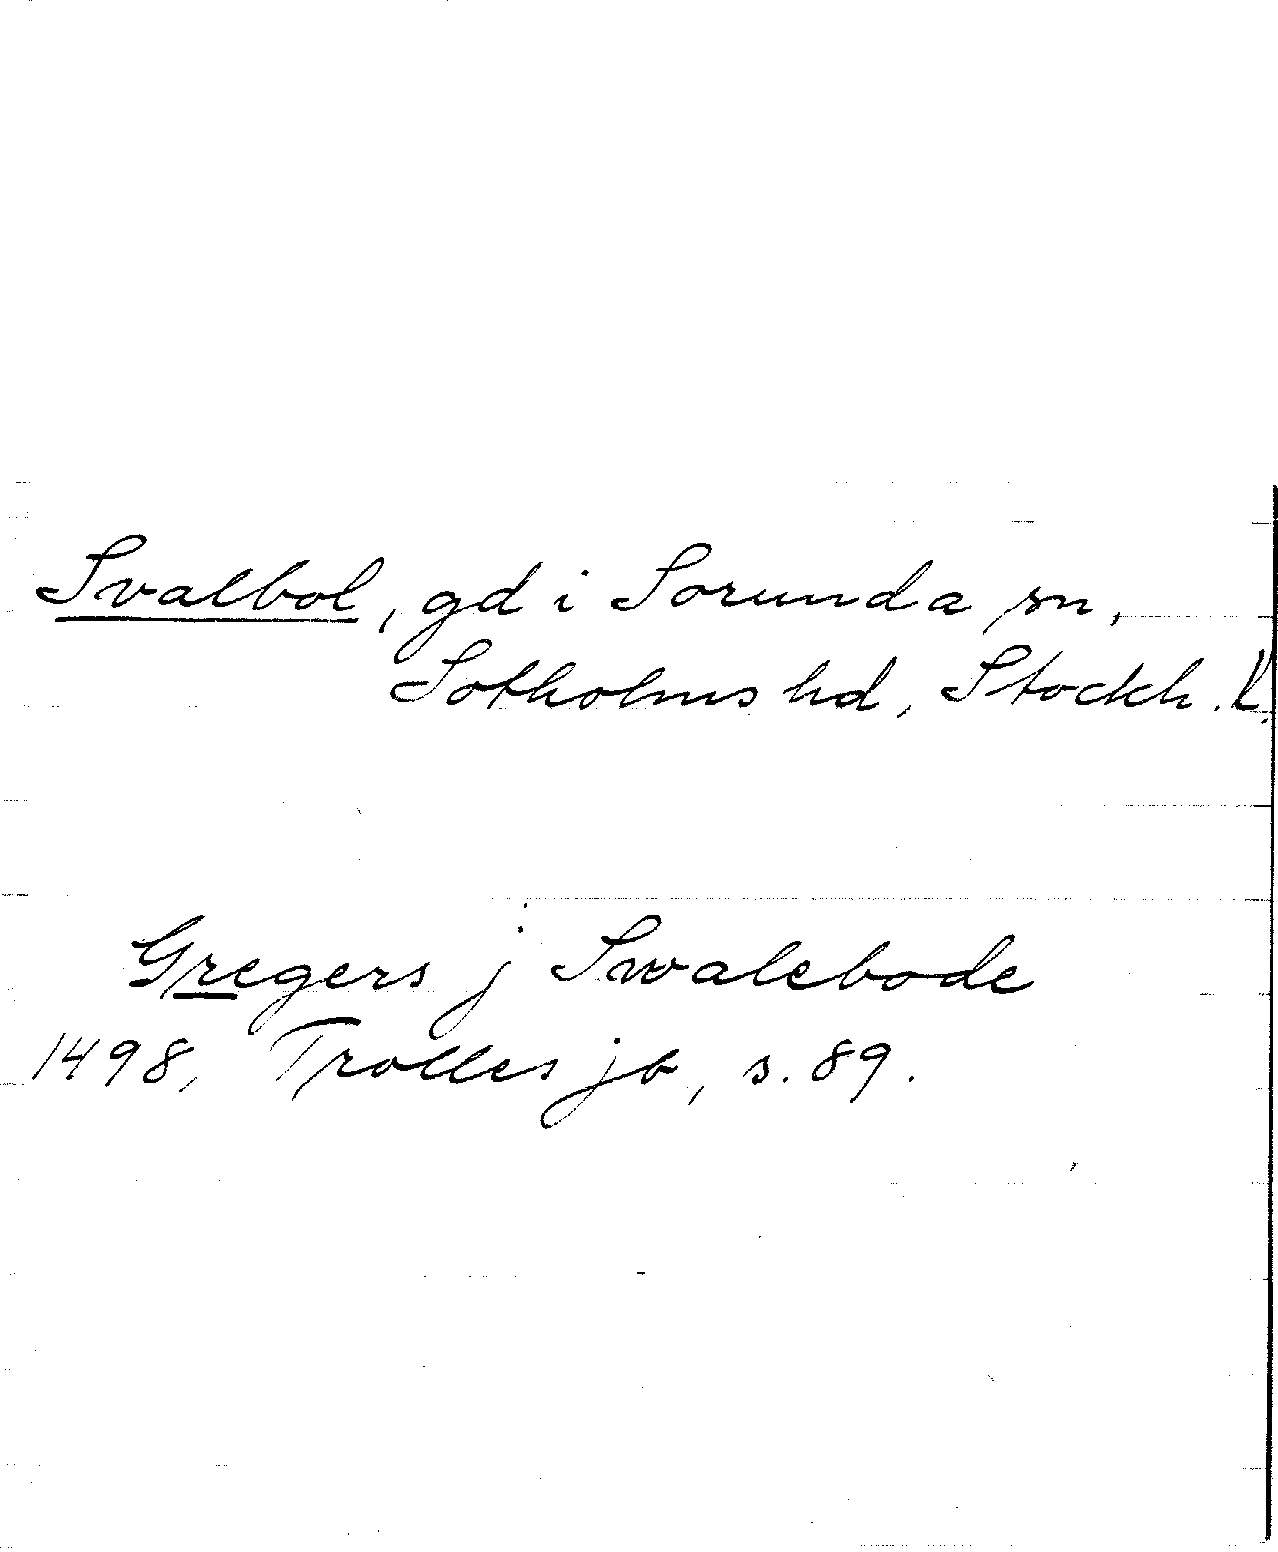 Svalbol, gd i Sorunda sn,
Sotholms hd, Stockh. l.
Gregers j Swalebode
1498, Trolles jb, s. 89.